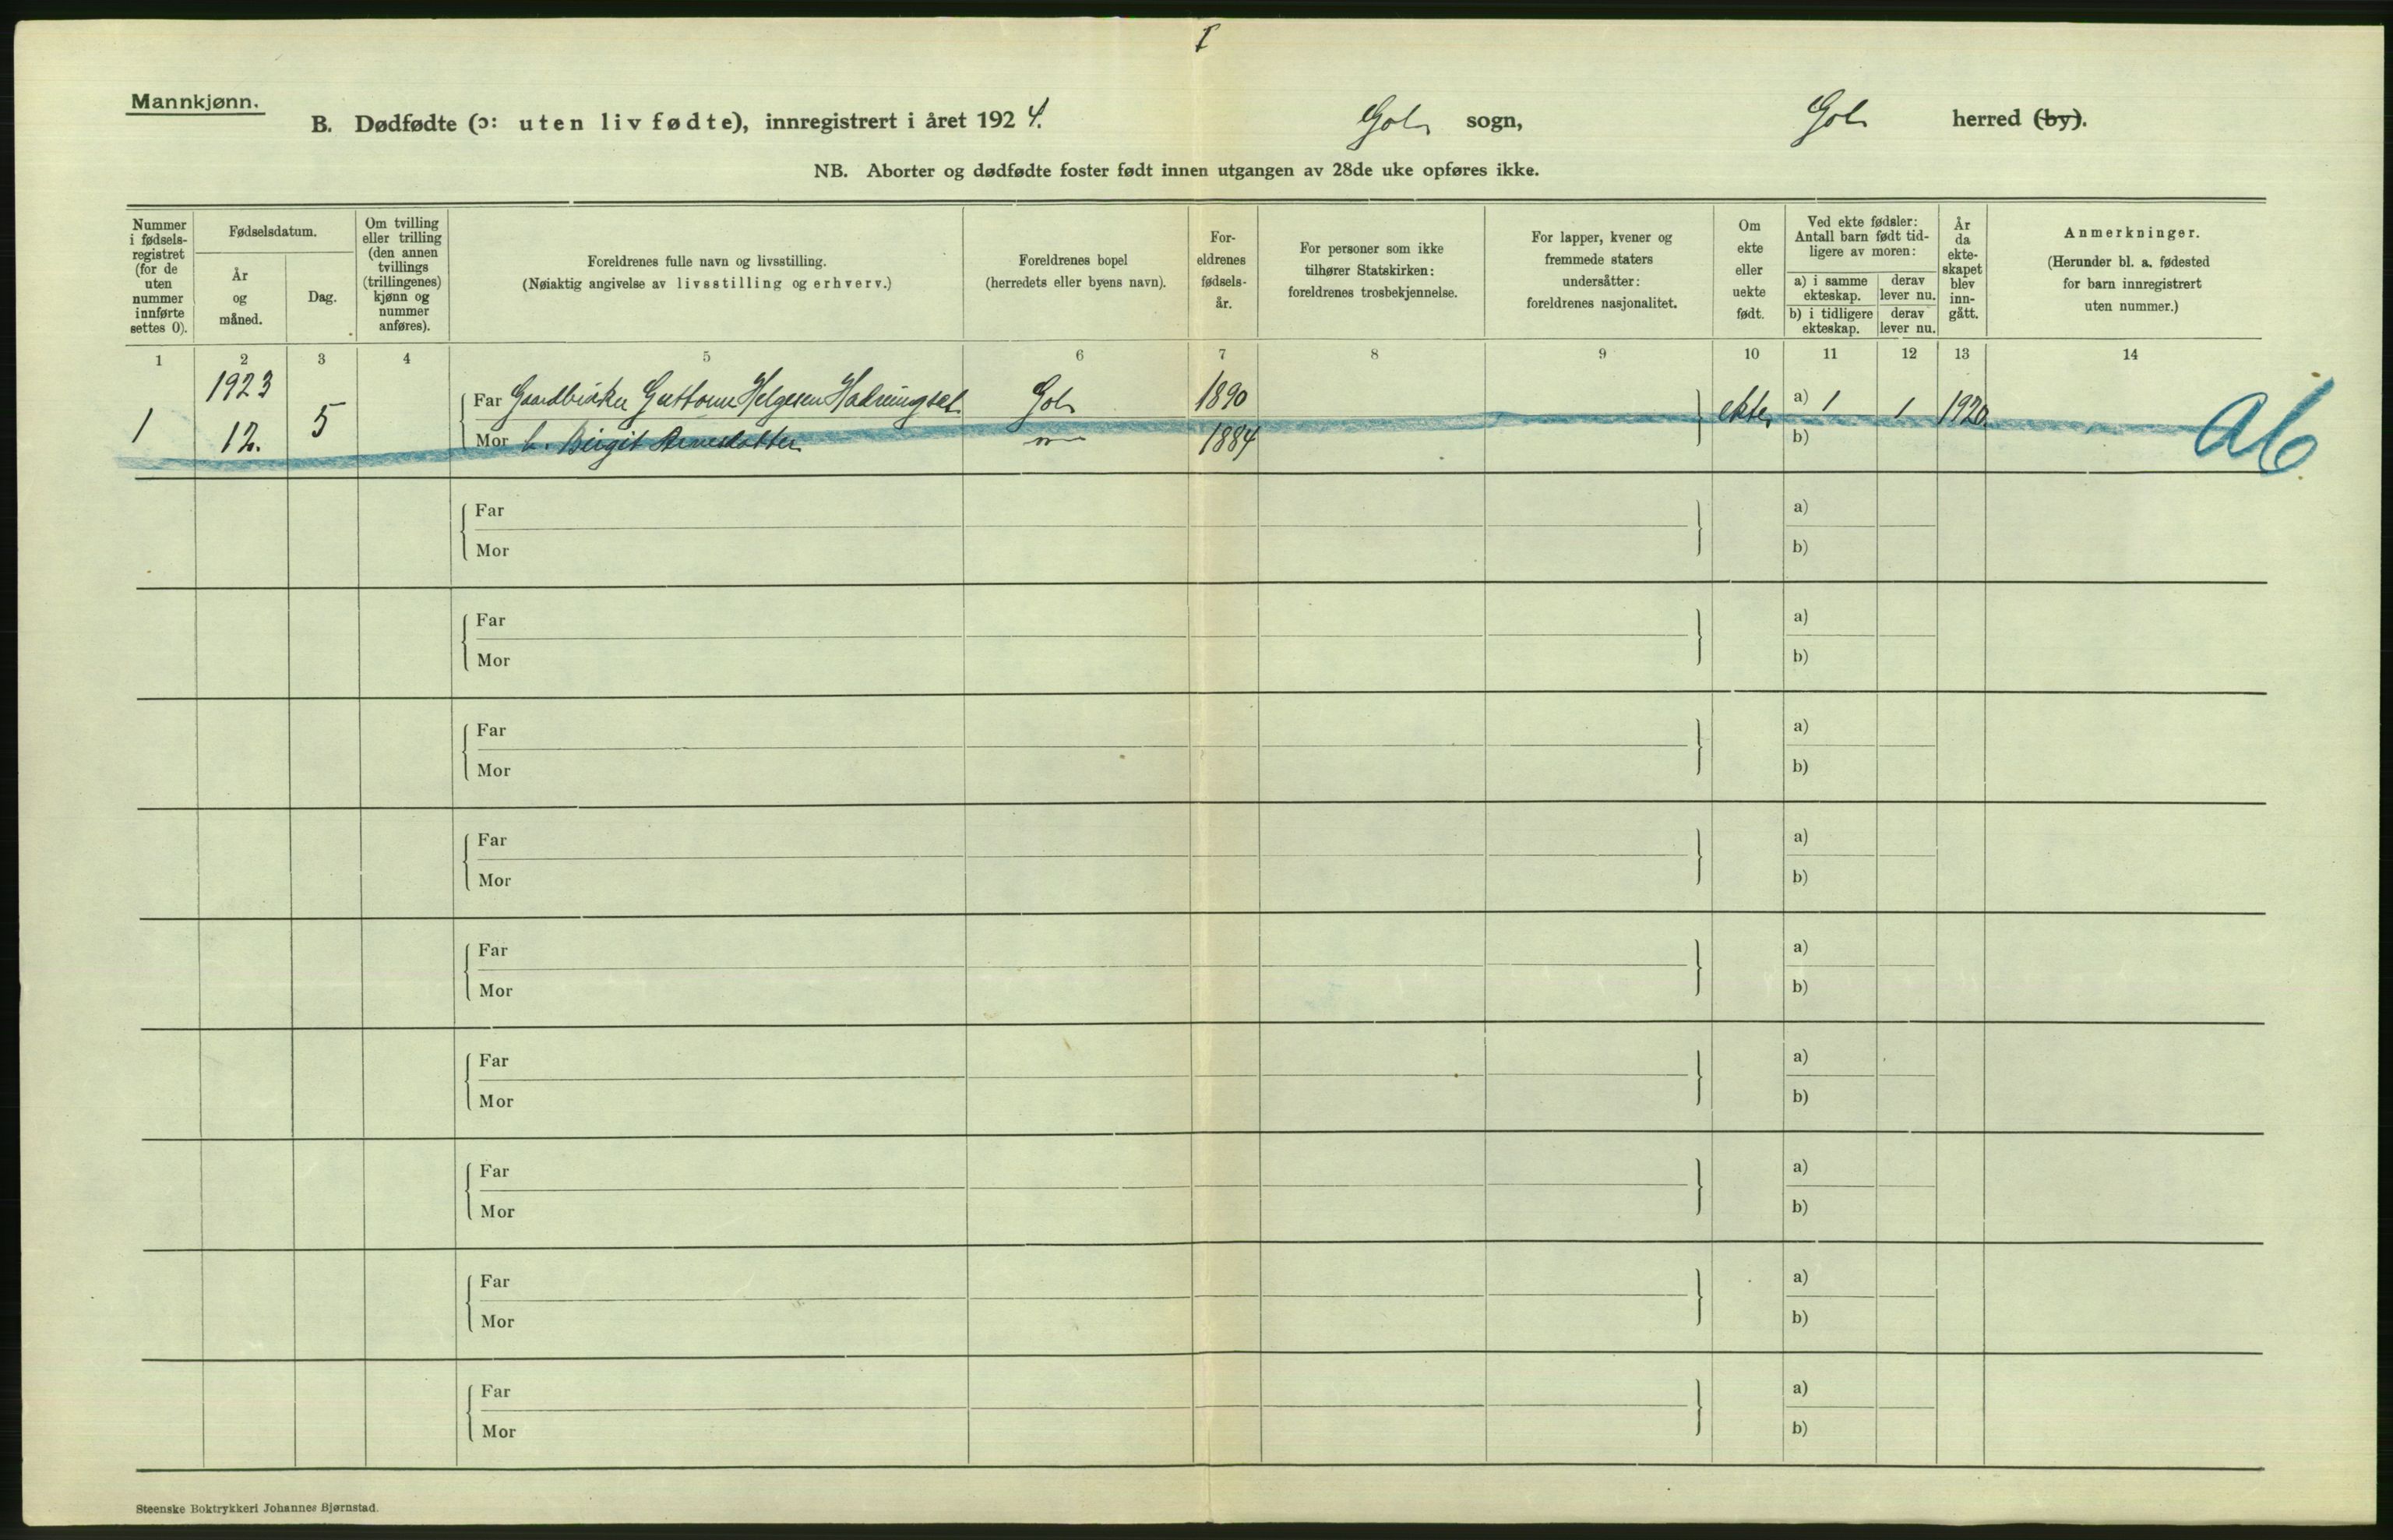 I
Mannkjønn.
B. Dødfødte (ɔ: uten liv fødte), innregistrert i året 1924. Gol sogn, Gol herred (by).
NB. Aborter og dødfødte foster født innen utgangen av 28de uke opføres ikke.
Nummer i fødsels-registret (for de uten nummer innførte settes 0).
Fødselsdatum.
År og måned.
Dag.
Om tvilling eller trilling (den annen tvillings (trillingenes) kjønn og nummer anføres).
Foreldrenes fulle navn og livsstilling.
(Nøiaktig angivelse av livsstilling og erhverv.)
Foreldrenes bopel
(herredets eller byens navn).
For-eldrenes fødsels-år.
For personer som ikke tilhører Statskirken: foreldrenes trosbekjennelse.
For lapper, kvener og fremmede staters undersåtter: foreldrenes nasjonalitet.
Om ekte eller uekte født.
Ved ekte fødsler: Antall barn født tid-ligere av moren:
a) i samme ekteskap.
derav lever nu.
b) i tidligere ekteskap.
derav lever nu.
År da ekte-skapet blev inn-gått.
Anmerkninger.
(Herunder bl. a. fødested for barn innregistrert uten nummer.)
1 2 3 4 5 6 7 8 9 10 11 12 13 14
1 1923 12. 5
Far Gaardbruker Guttorm Helgesen Gol 1890 ekte a) 1 1 1920
Mor h. Birgit Arnesdotter 1884 b)
Far a)
Mor b)
Far a)
Mor b)
Far a)
Mor b)
Far a)
Mor b)
Far a)
Mor b)
Far a)
Mor b)
Far a)
Mor b)
Far a)
Mor b)
Far a)
Mor b)
Steenske Boktrykkeri Johannes Bjørnstad.